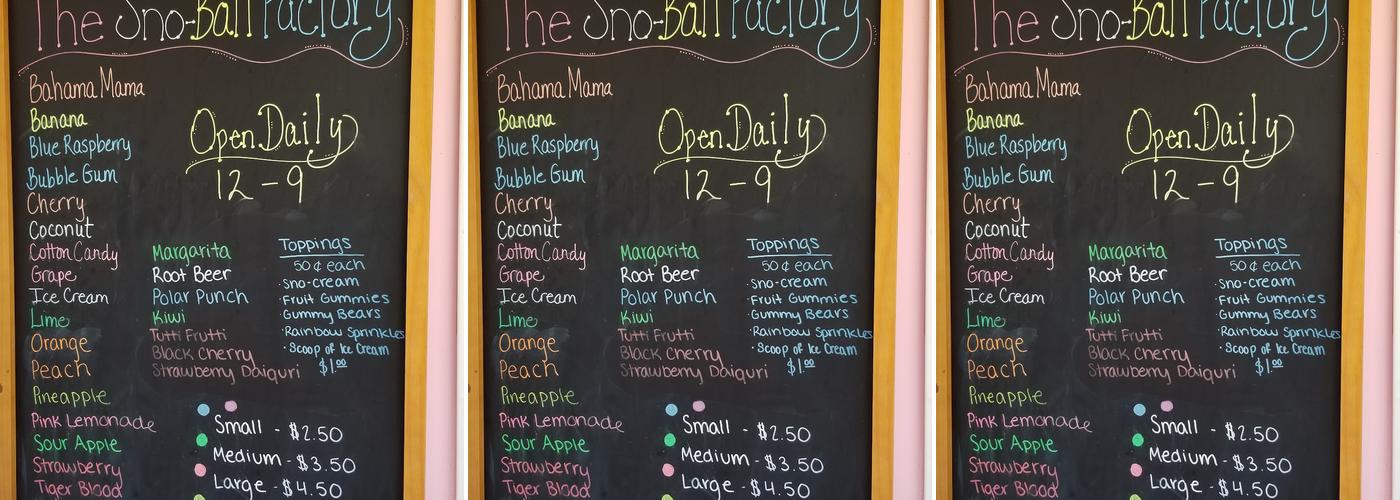 The Sno-Ball Factory
Bahama Mama
Banana
Blue Raspberry
Bubble Gum
Cherry
Coconut
Cotton Candy
Grape
Ice Cream
Lime
Orange
Peach
Pineapple
Pink Lemonade
Sour Apple
Strawberry
Tiger Blood
Open Daily
12 - 9
Margarita
Root Beer
Polar Punch
Kiwi
Tutti Frutti
Black Cherry
Strawberry Daiquri
Toppings
50¢ each
·Sno-cream
·Fruit Gummies
·Gummy Bears
·Rainbow Sprinkles
·Scoop of Ice Cream
$1.00
Small - $2.50
Medium - $3.50
Large - $4.50
The Sno-Ball Factory
Bahama Mama
Banana
Blue Raspberry
Bubble Gum
Cherry
Coconut
Cotton Candy
Grape
Ice Cream
Lime
Orange
Peach
Pineapple
Pink Lemonade
Sour Apple
Strawberry
Tiger Blood
Open Daily
12 - 9
Margarita
Root Beer
Polar Punch
Kiwi
Tutti Frutti
Black Cherry
Strawberry Daiquri
Toppings
50¢ each
·Sno-cream
·Fruit Gummies
·Gummy Bears
·Rainbow Sprinkles
·Scoop of Ice Cream
$1.00
Small - $2.50
Medium - $3.50
Large - $4.50
The Sno-Ball Factory
Bahama Mama
Banana
Blue Raspberry
Bubble Gum
Cherry
Coconut
Cotton Candy
Grape
Ice Cream
Lime
Orange
Peach
Pineapple
Pink Lemonade
Sour Apple
Strawberry
Tiger Blood
Open Daily
12 - 9
Margarita
Root Beer
Polar Punch
Kiwi
Tutti Frutti
Black Cherry
Strawberry Daiquri
Toppings
50¢ each
·Sno-cream
·Fruit Gummies
·Gummy Bears
·Rainbow Sprinkles
·Scoop of Ice Cream
$1.00
Small - $2.50
Medium - $3.50
Large - $4.50